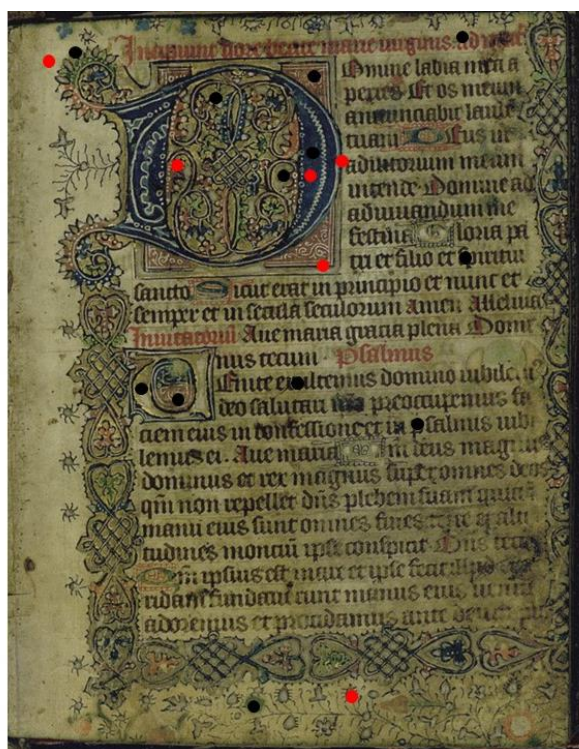 Incipiunt hore beate marie virginis ad
Domine labia mea a
peries Et os meum
annunciabit laudē
tuam Deus in
adiutorium meum
intende Domine ad
adiuvandum me
festina Gloria pa
tri et filio et spiritui
sancto Sicut erat in principio et nunc et
semper et in secula seculorum amen Alleluia
Invitatoriū Ave maria gracia plena Domi
nus tecum Psalmus
Venite exultemus domino iubile
deo salutari preoccupemus fa
ciem eius in confessione et in psalmis iubi
lemus ei. Ave maria deus magnus
dominus et rex magnus super omnes deos
qm̄ non repellet dn̄s plebem suam quia in
manu eius sunt omnes fines terre et alti
tudines monciū ipse conspicit
ipsius est mare et ipse fecit illud et
ridam fundaverunt manus eius venite
adoremus et procidamus ante deum